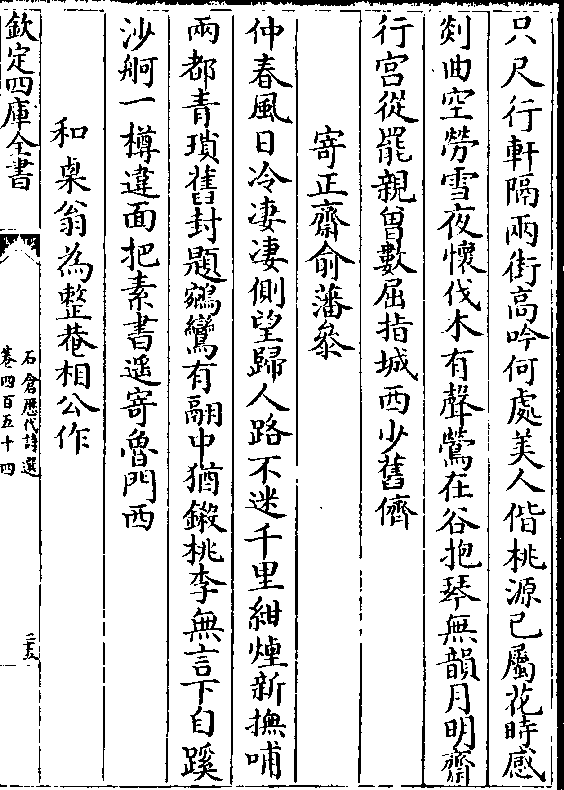 只尺行軒隔兩街高吟何處美人偕桃源已屬花時感
剡曲空勞雪夜懷伐木有聲鶯在谷抱琴無韻月明齋
行宮從罷親曾數屈指城西少舊儕
寄正齋俞藩叅
仲春風日冷凄凄側望歸人路不迷千里紺煙新撫哺
兩都青瑣舊封題鵷鸞有翮中猶鎩桃李無言下自蹊
沙舸一樽違面把素書遥寄魯門西
和稟翁為整菴相公作
欽定四庫全書
石倉歷代詩選
卷四百五十四
三五